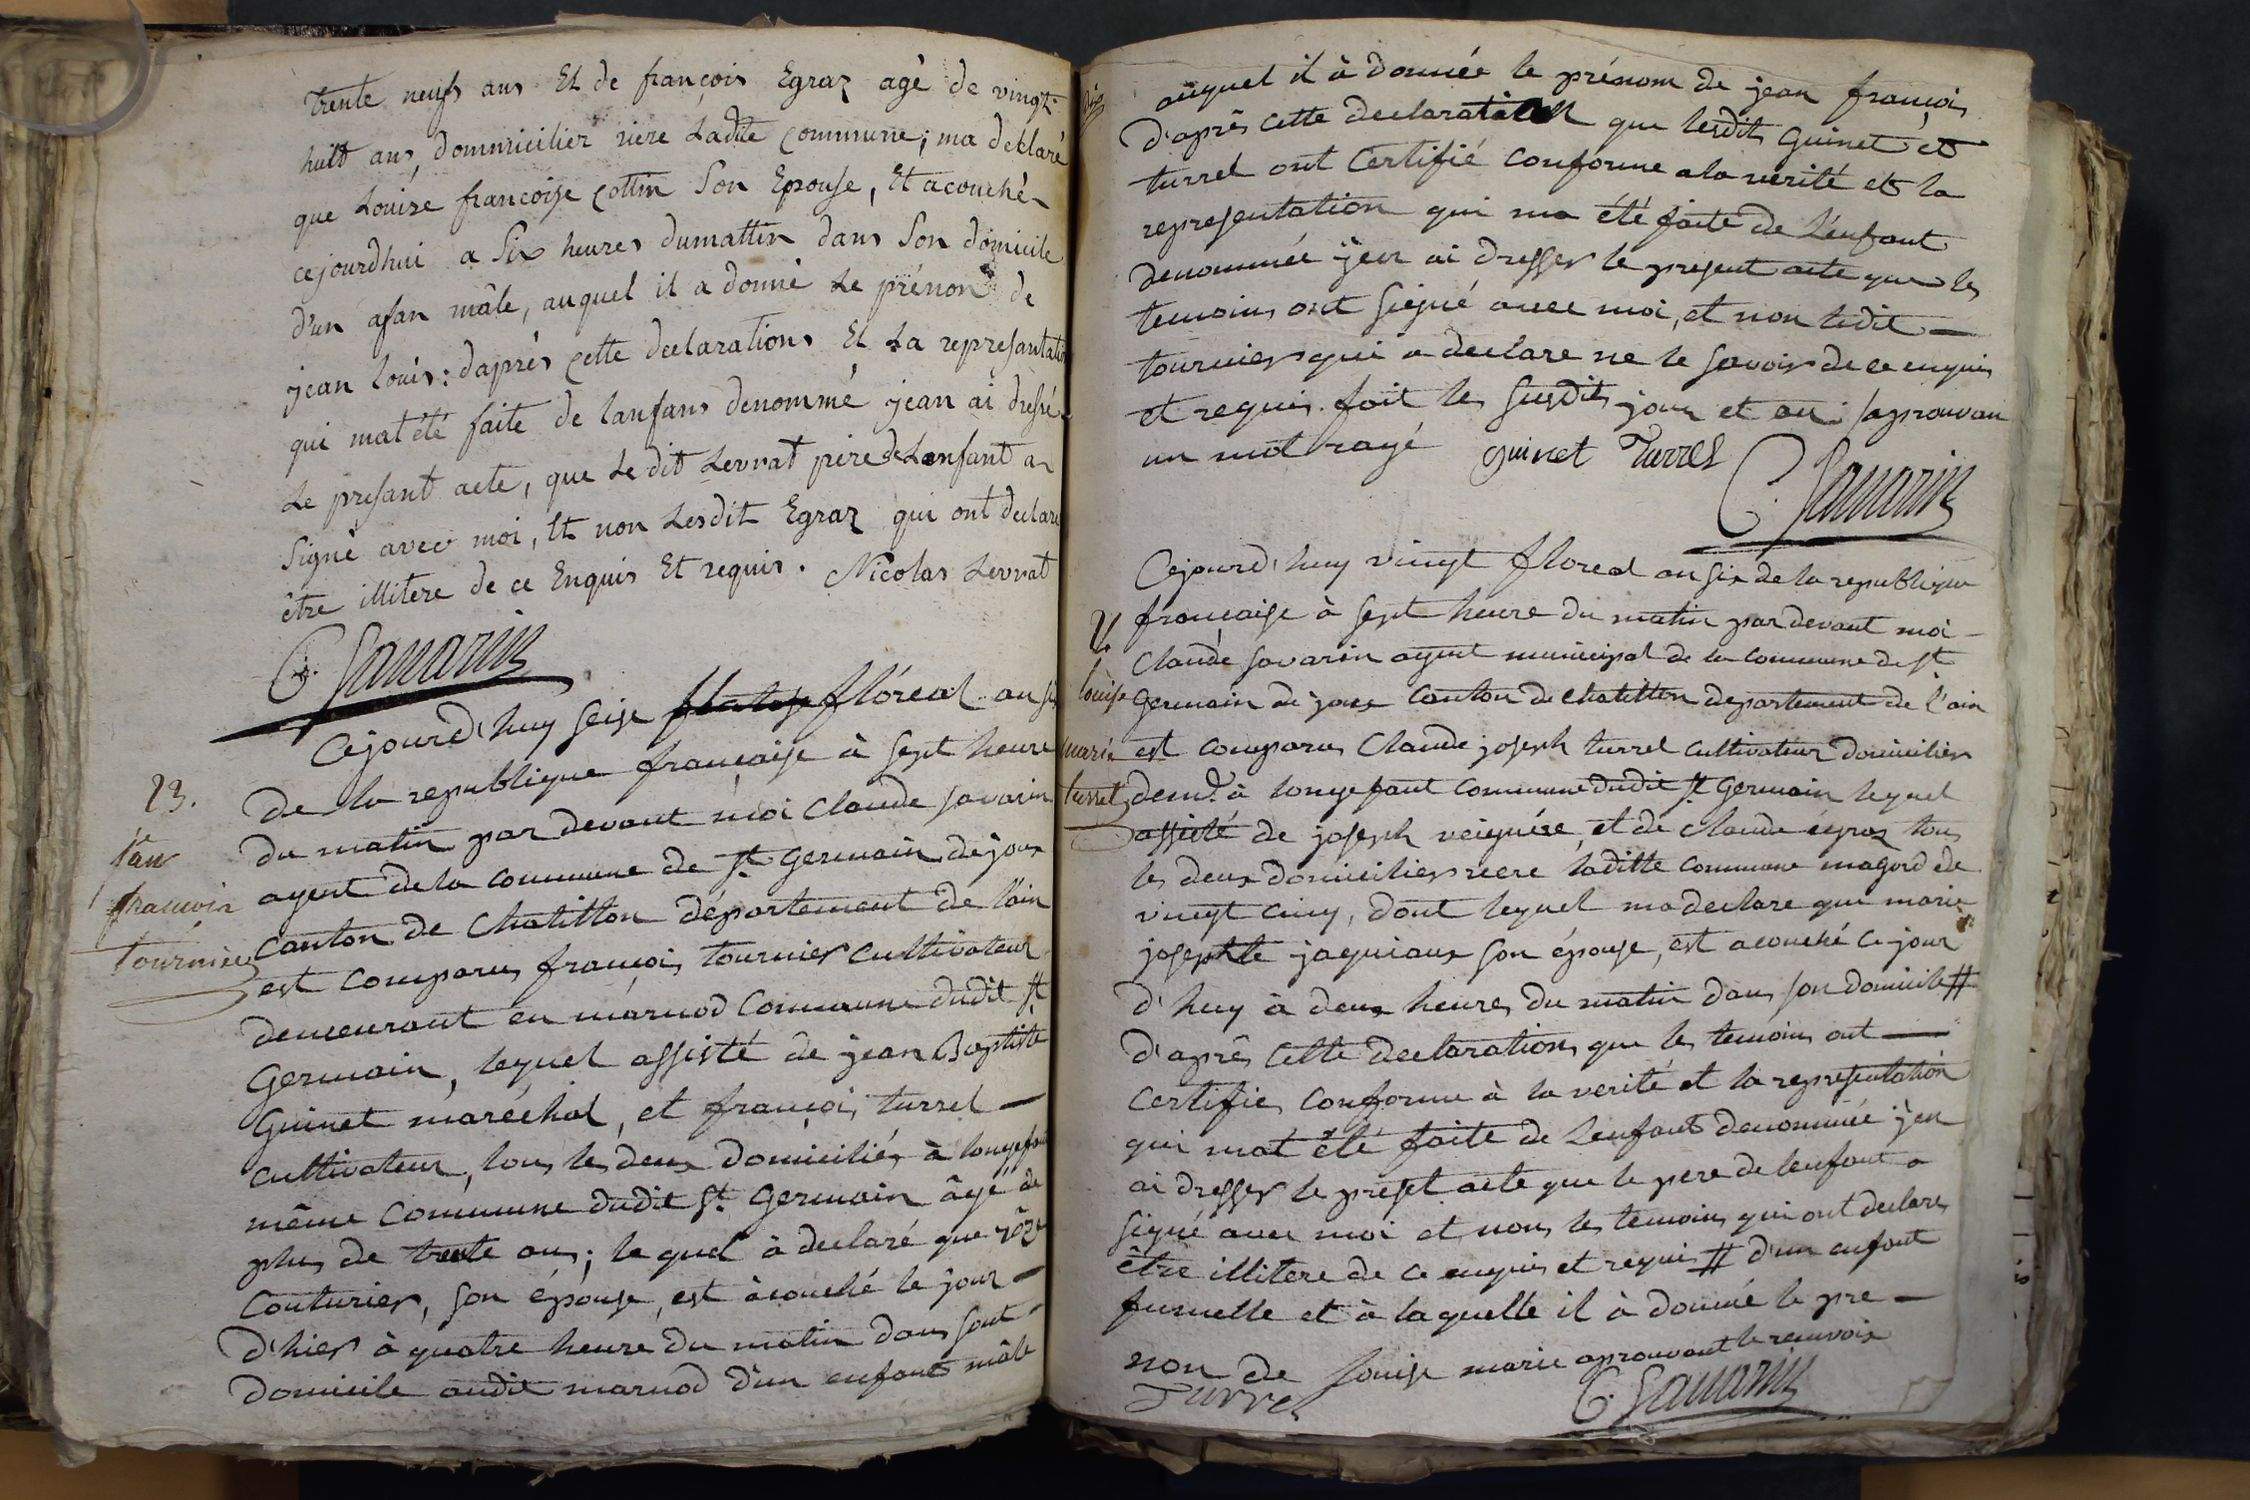 trente neufs ans Et de françois Egraz agé de vingt
huit ans, dommicilier riere Ladite Commune; ma declaré
que Louise françoise Cottin Son Epouse, Et acouché
cejourdhui a Six heures dumattin dans Son domicile
d'un afan mâle, auquel il a donné Le prénon de
jean louis: daprés Cette declarations Et La represantation
qui mat été faite de lanfans denommé jean ai dressé
Le presant acte, que Le dit Levrat pére de Lenfant a
Signé avec moi, Et non Lesdit Egraz qui ont declaré
être illitere de ce Enquis Et requis. Nicolas Levrat
C. Savarin
23.
jean
françois
tournier
Cejourd'huy seise floreal an six
de la republique française à sept heure
du matin par devant moi Claude savarin
agent de la commune de st Germain de joux
canton de Chatillon département de l'ain
est comparus françois tournier cultivateur
demeurant en marnod Commune dudit st
Germain, lequel assisté de jean Baptiste
Guinet maréchal, et françois turrel
cultivateur, tous les deux domiciliés à longefant
même Commune dudit St. Germain âgé de
plus de trente ans; le quel à declaré que
Couturier, son épouse, est àcouché le jour
d'hier à quatre heure du matin dans sont
domicile audit marnod d'un enfant mâle
auquel il à donnée le prénom de jean françois
d'après cette declaration que lesdits Guinet et
turrel ont Certifié conforme a la verité et la
representation qui ma été faite de L'enfant
denommée j'en ai dresser le present acte que les
temoins ont signé avec moi, et non ledit
tournier qui a declare ne le savoir de ce enquis
et requis. fait les susdits jour et an japrouvan
un mot rayé Guinet Turrel
C. Savarin
louise
marie
turrel
Cejourd'huy vingt floreal an six de la republique
française à sept heure du matin par devant moi
Claude savarin agent municipal de la commune de st
Germain de joux Canton de chatillon departement de l'ain
est comparus Claude joseph turrel cultivateur domicilier
demt. à longefant Commune dudit st Germain lequel
assisté de joseph et de Claude egraz tous
les deux domicilier riere laditte commune magord de
vingt cinq, dont lequel ma declare que marie
josephte jaquiaux son épouse, est acouché ce jour
d'huy à deux heures du matin dans son domicile #
d'après cette declarations que les temoins ont
certifie conforme à la verité et la representation
qui mat été faite de Lenfant denommée j'en
ai dresser le preset acte que le pere de lenfant a
signé avec moi et non les temoins qui ont declare
être illitere de ce enquis et requis # d'un enfant
fumelle et à laquelle il à donné le pre
non de louise marie aprouvant le renvoix
Turrel
C. Savarin